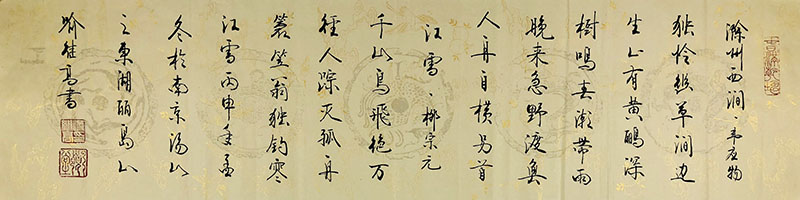 滁州西涧、韦应物
独怜幽草涧边
生上有黄鹂深
树鸣春潮带雨
晚来急野渡無
人舟自横另首
江雪、柳宗元
千山鸟飞绝万
径人踪灭孤舟
蓑笠翁独钓寒
江雪丙申年孟
冬於南京汤山
之东湖丽岛山
喻继高书